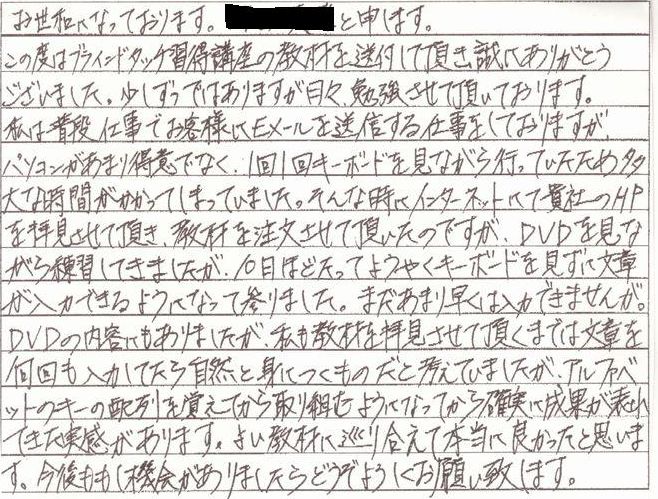 お世話になっております。と申します。
この度はブラインドタッチ習得講座の教材を送付して頂き誠にありがとう
ございました。少しずつではありますが日々、勉強させて頂いております。
私は普段仕事でお客様にEメールを送信する仕事をしておりますが、
パソコンがあまり得意でなく、1回1回キーボードを見ながら行っていたため多
大な時間がかかってしまっていました。そんな時にインターネットにて貴社のHP
を拝見させて頂き、教材を注文させて頂いたのですが、DVDを見な
がら練習してきましたが、10日ほどたってようやくキーボードを見ずに文章
が入力できるようになって参りました。まだあまり早くは入力できませんが。
DVDの内容にもありましたが、私も教材を拝見させて頂くまでは文章を
何回も入力してたら自然と身につくものだと考えていましたが、アルファベ
ットのキーの配列を覚えてから取り組むようになってから確実に成果が表れ
てきた実感があります。よい教材に巡り合えて本当に良かったと思いま
す。今後ももし機会がありましたらどうぞよろしくお願い致します。